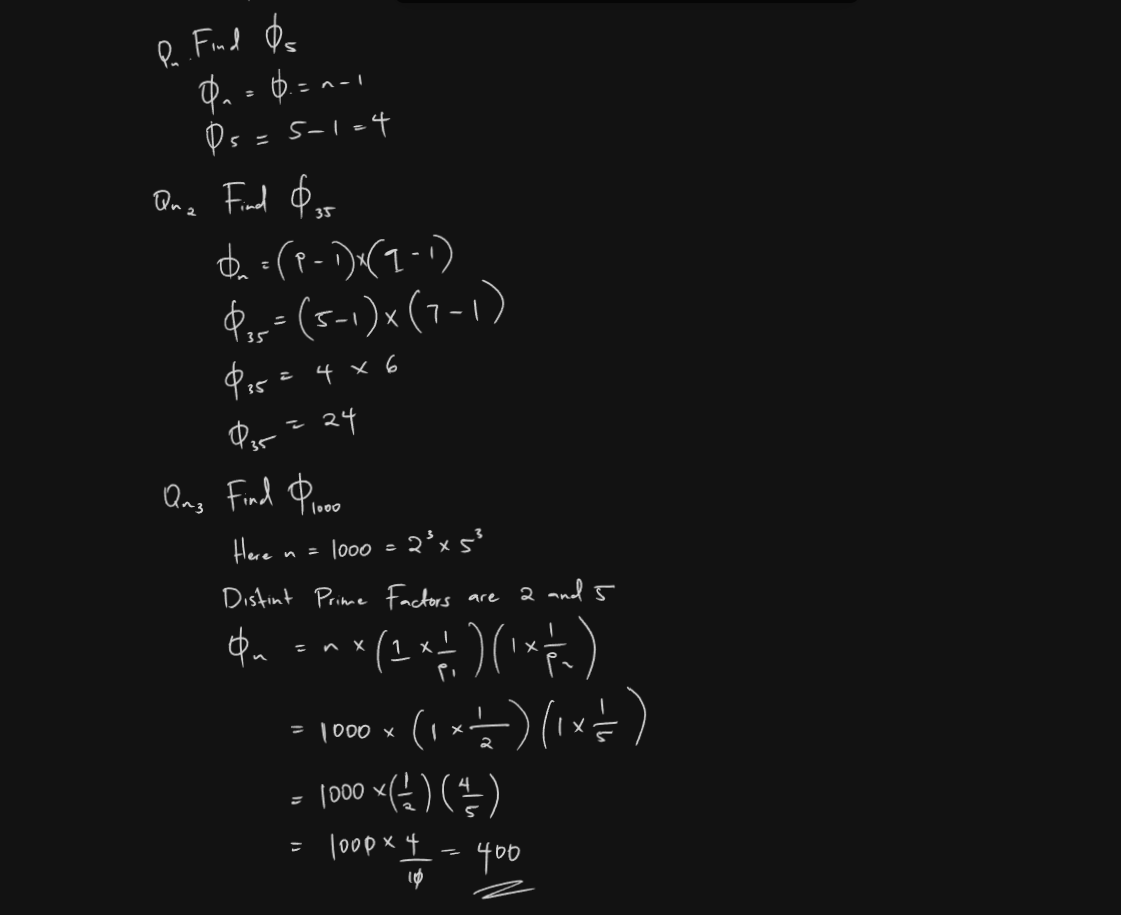 Qn. Find ϕ₅
ϕₙ = ϕ = n - 1
ϕ₅ = 5 - 1 = 4
Qn₂ Find ϕ₃₅
ϕₙ = (p - 1) × (q - 1)
ϕ₃₅ = (5 - 1) × (7 - 1)
ϕ₃₅ = 4 × 6
ϕ₃₅ = 24
Qn₃ Find ϕ₁₀₀₀
Here n = 1000 = 2³ × 5³
Distint Prime Factors are 2 and 5
ϕₙ = n × (1 × 1/p₁) (1 × 1/p₂)
= 1000 × (1 × 1/2) (1 × 1/5)
= 1000 × (1/2) (4/5)
= 1000 × 4/10 = 400